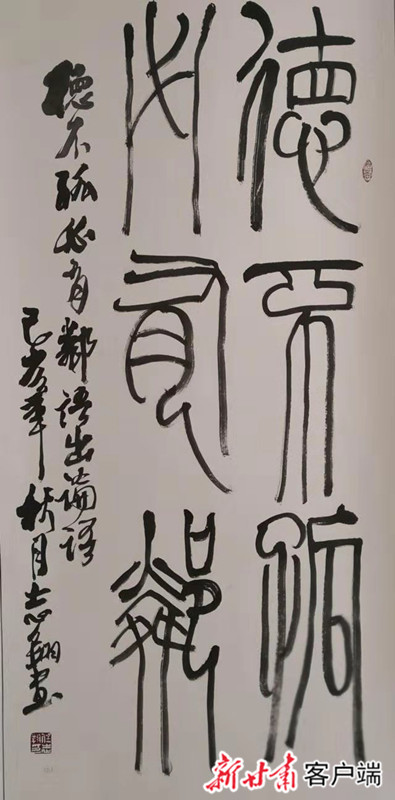 德不孤
必有鄰
德不孤必有鄰語出論語
己亥年秋月志翔书
新甘肃 客户端